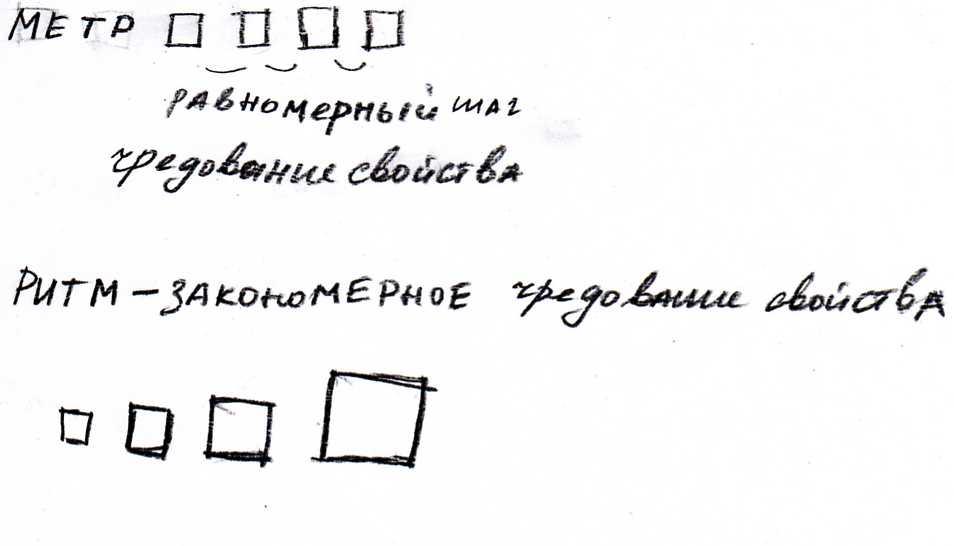 МЕТР
равномерный шаг
чредование свойства
РИТМ – ЗАКОНОМЕРНОЕ чредование свойства